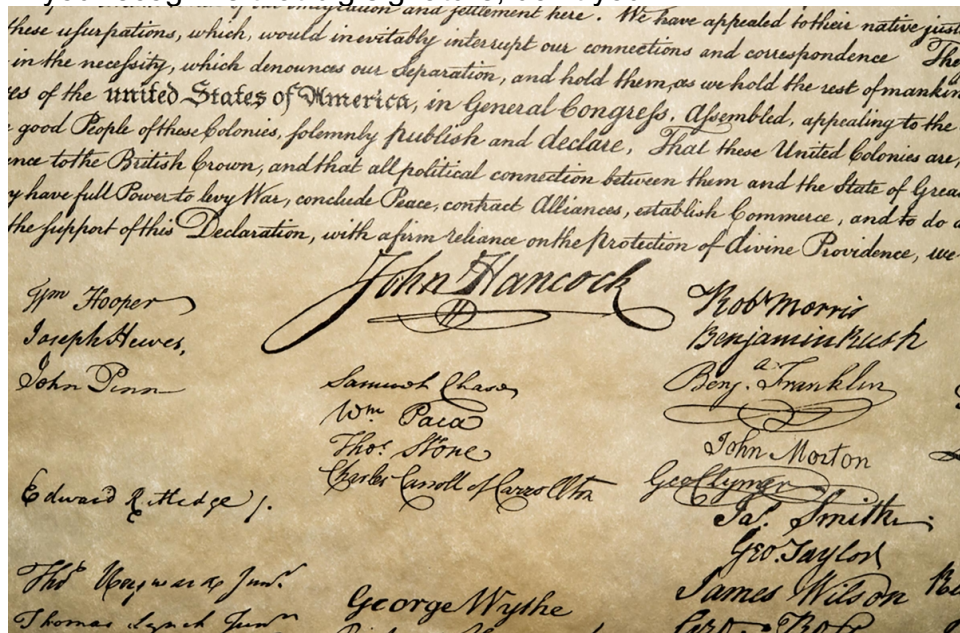 and settlement here. We have appealed to their native
these usurpations, which, would inevitably interrupt our connections and correspondence The
in the necessity, which denounces our Separation, and hold them, as we hold the rest of
of the united States of America, in General Congress, Assembled, appealing to the
good People of these Colonies, solemnly publish and declare, That these United Colonies are,
to the British Crown, and that all political connection between them and the State of
have full Power to levy War, conclude Peace, contract Alliances, establish Commerce, and to do
the support of this Declaration, with a firm reliance on the protection of divine Providence, we
John Hancock
Wm Hooper
Joseph Hewes,
John Penn
Edward Rutledge /.
Thos Heyward Junr.
Thomas Lynch Junr
Samuel Chase
Wm Paca
Thos. Stone
Charles Carroll of Carrollton
George Wythe
Robt Morris
Benjamin Rush
Benja. Franklin
John Morton
Geo Clymer
Jas. Smith.
Geo. Taylor
James Wilson
Geo. Ross